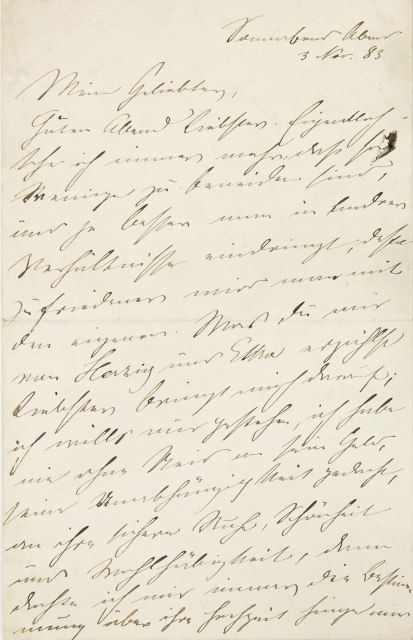 Sonnabend Abend
3 Nov. 83
Mein Geliebter,
Guten Abend Liebster. Eigentlich
sehe ich immer mehr, daß so
Wenige zu beneiden sind,
und je besser man in andrer
Verhältnisse eindringt, desto
zufriedener wird man mit
den eigenen. Was Du mir
von Herzig und Elka erzählst
Liebster bringt mich darauf;
ich will's nur gestehen, ich habe
nie ohne Neid an sein Geld,
seine Unabhängigkeit gedacht,
an ihre sichere Ruhe, Schönheit
und Wohlhäbigkeit, denn
dachte ich mir immer die Bestim-
mung über ihre Hochzeit hinge nur